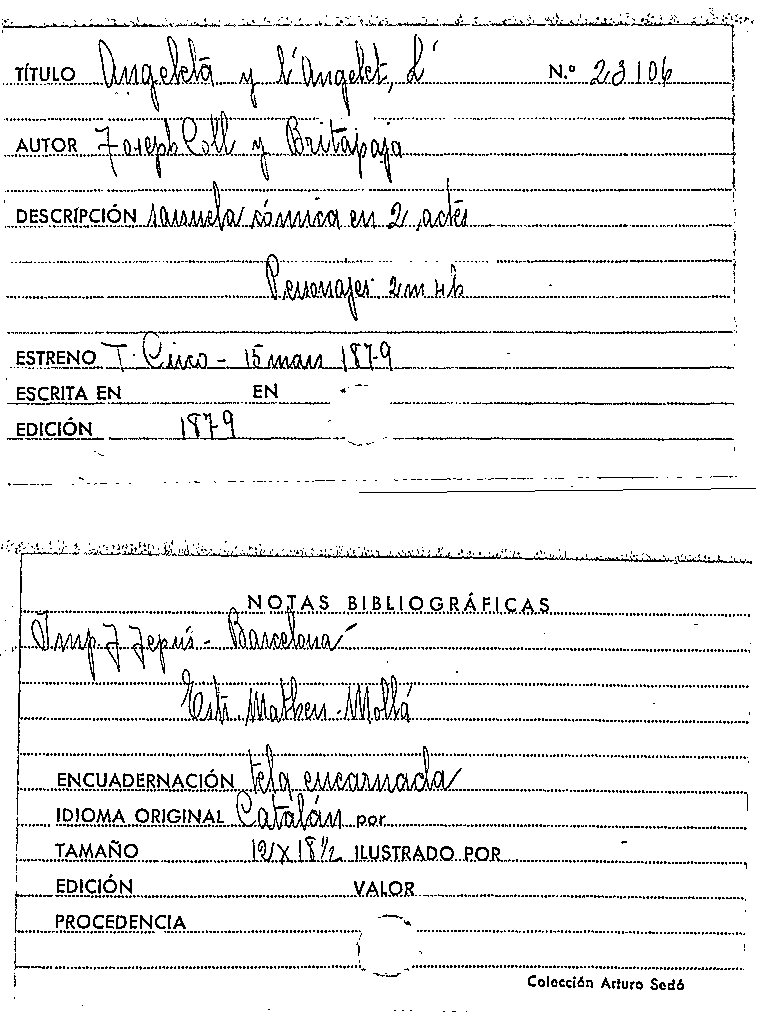 TÍTULO Angeleta y l'Angelet, L' N.º 23106
AUTOR Joseph Coll y Britapaja
DESCRIPCIÓN sarsuela cómica en 2 actes
Personajes 2m 4h
ESTRENO T. Circo - 15 mars 1879
ESCRITA EN EN
EDICIÓN 1879
NOTAS BIBLIOGRÁFICAS
Imp J Jepús - Barcelona
Estr. Matheu - Mollá
ENCUADERNACIÓN tela encarnada
IDIOMA ORIGINAL Catalán por
TAMAÑO 12 X 18 1/2 ILUSTRADO POR
EDICIÓN VALOR
PROCEDENCIA
Colección Arturo Sedó